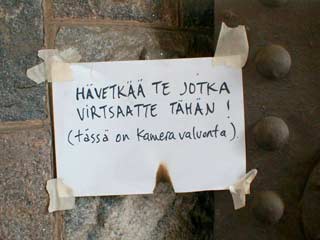 HÄVETKÄÄ TE JOTKA
VIRTSAATTE TÄHÄN !
(tässä on kameravalvonta)